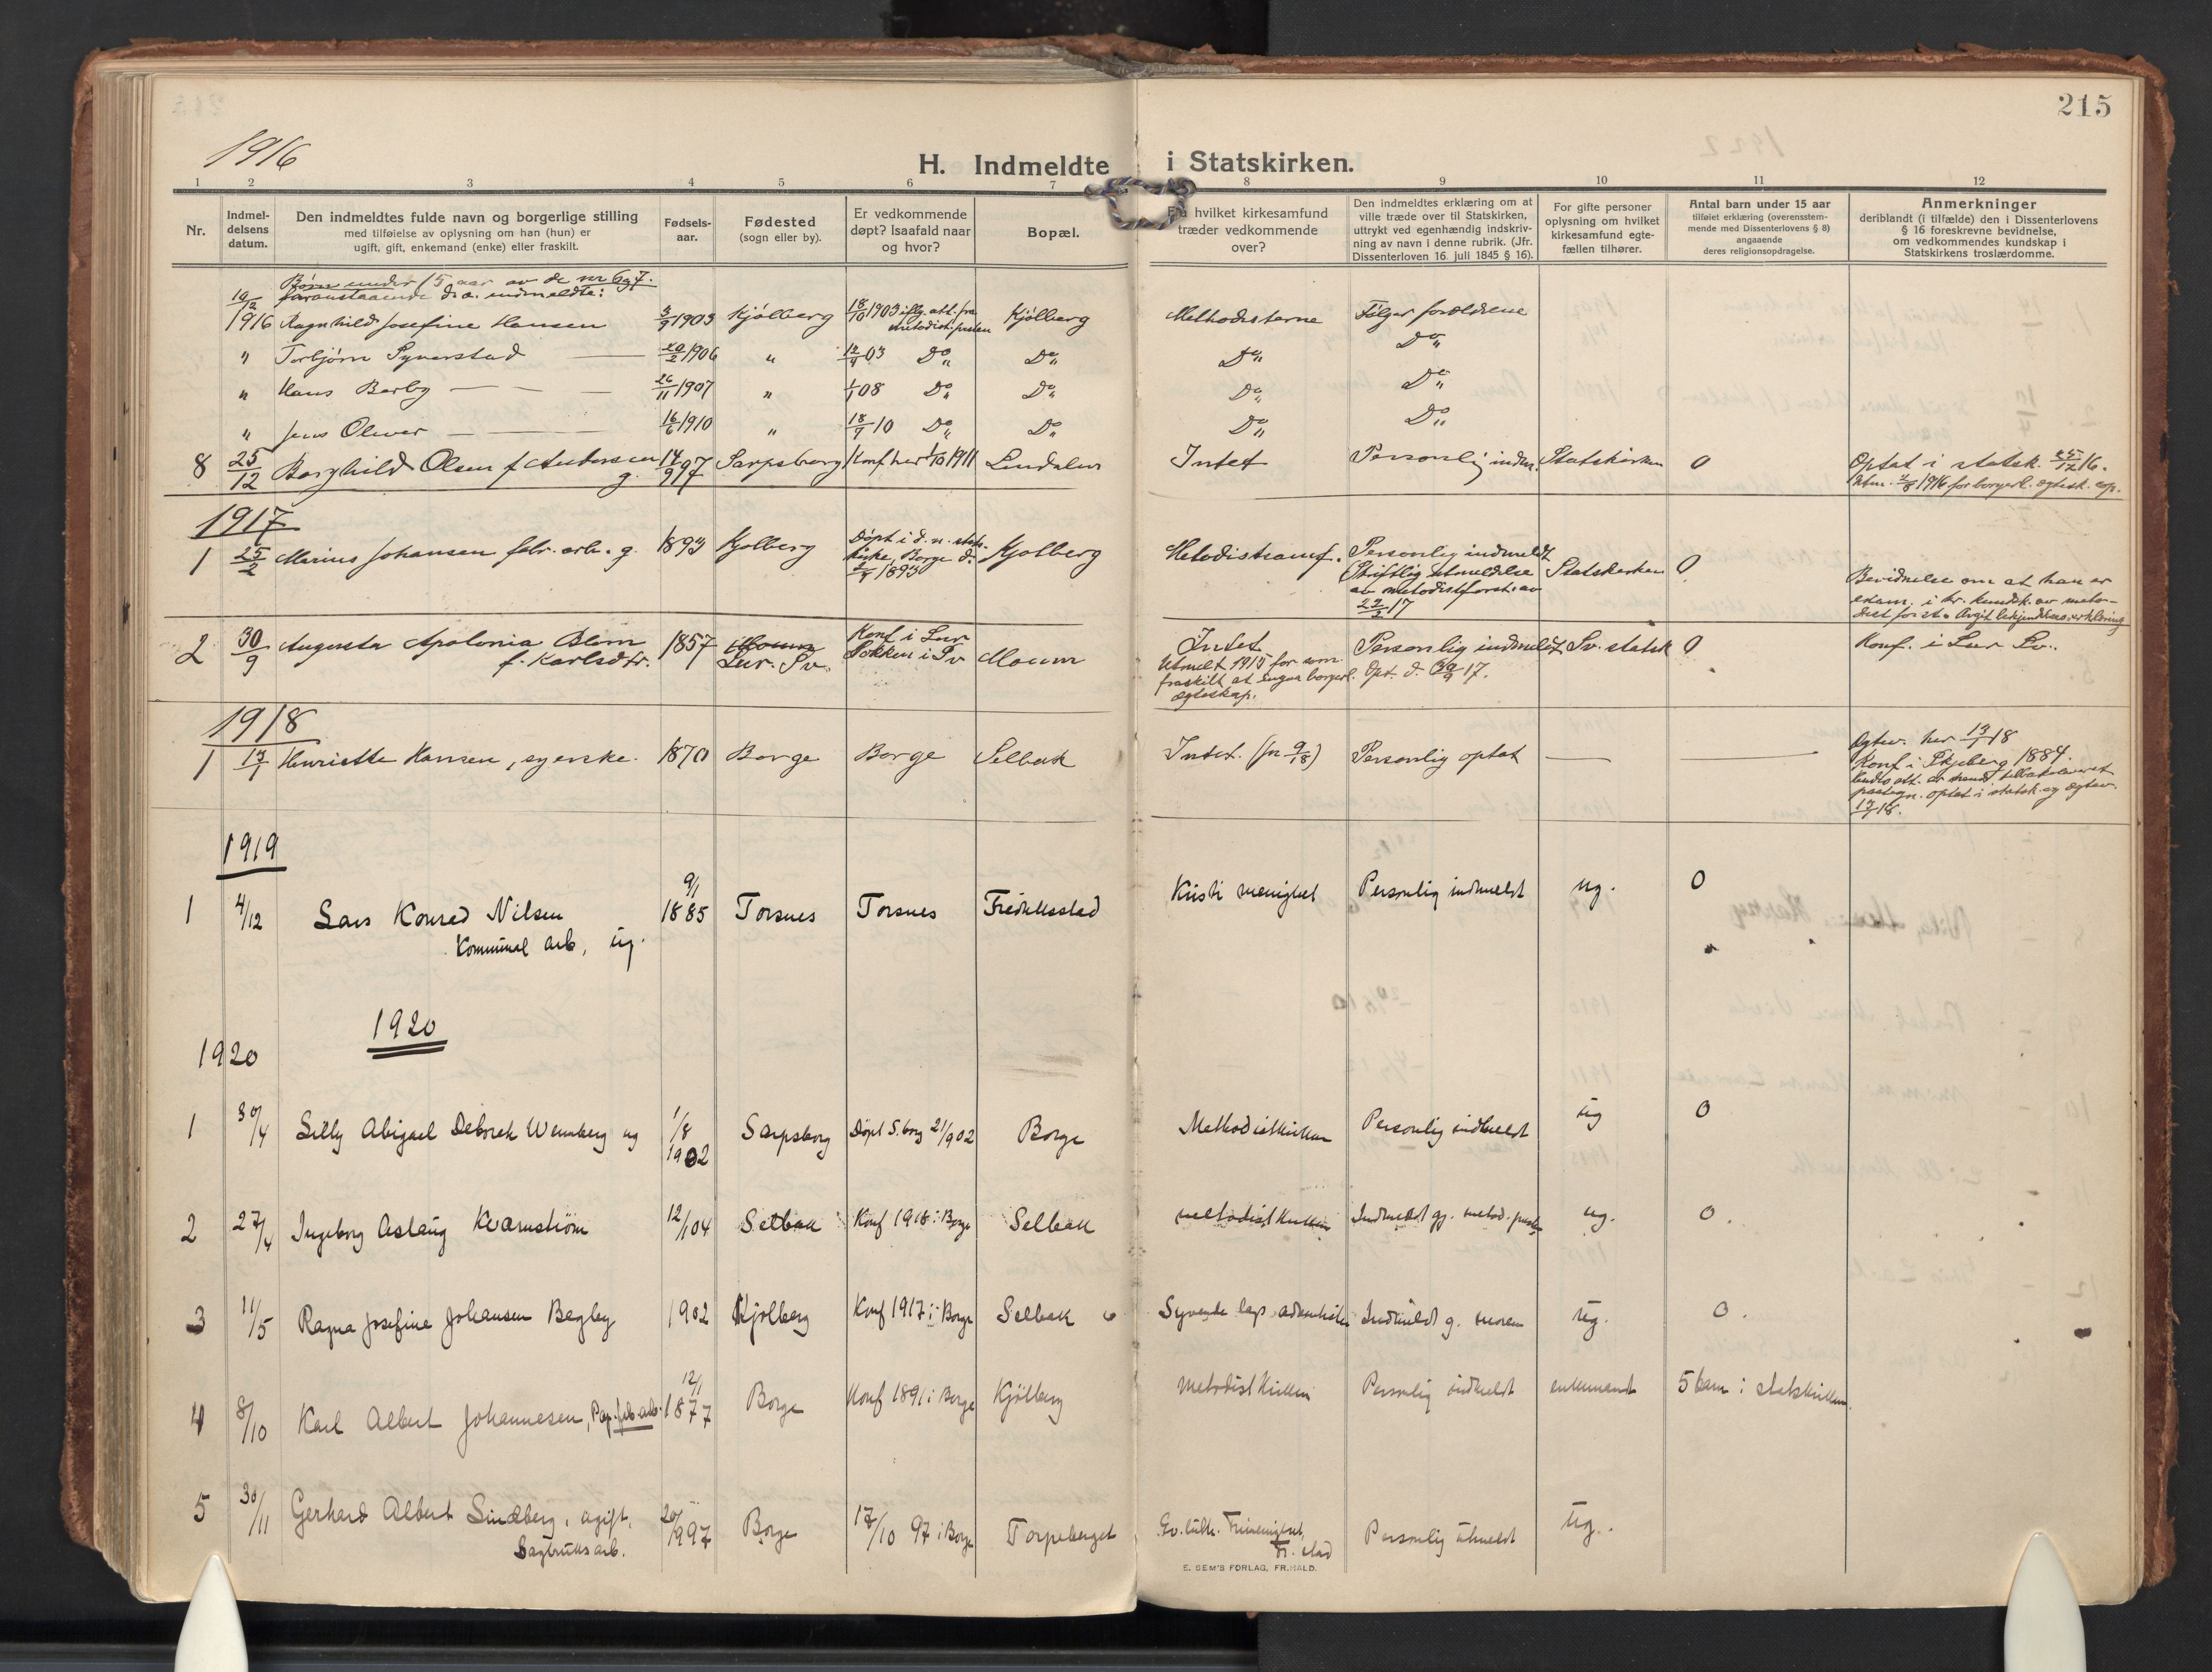 215
1916
H. Indmeldte i Statskirken.
1 2 3 4 5 6 7 8 9 10 11 12
Nr.
Indmel-
delsens
datum.
Den indmeldtes fulde navn og borgerlige stilling
med tilføielse av oplysning om han (hun) er
ugift, gift, enkemand (enke) eller fraskilt.
Fødsels-
aar.
Fødested
(sogn eller by).
Er vedkommende
døpt? Isaafald naar
og hvor?
Bopæl.
hvilket kirkesamfund
træder vedkommende
over?
Den indmeldtes erklæring om at
ville træde over til Statskirken,
uttrykt ved egenhændig indskriv-
ning av navn i denne rubrik. (Jfr.
Dissenterloven 16. juli 1845 § 16).
For gifte personer
oplysning om hvilket
kirkesamfund egte-
fællen tilhører.
Antal barn under 15 aar
tilføiet erklæring (overensstem-
mende med Dissenterlovens § 8)
angaaende
deres religionsopdragelse.
Anmerkninger
deriblandt (i tilfælde) den i Dissenterlovens
§ 16 foreskrevne bevidnelse,
om vedkommendes kundskap i
Statskirkens troslærdomme.
Børn under 15 aar av de nr 6 og 7.
foranstaaende d. a. indmeldte:
10/12 1916 Ragnhild Josefine Hansen 3/9 1903 Kjølberg 18/10 1903 iflg. att. fra metodistpresten Kjølberg Methodisterne Følger forældrene
" Torbjørn Synerstad 20/2 1906 " Do Do Do Do
" Hans Barby 26/11 1907 " 1/1 08 Do Do Do Do
" Jens Oliver 16/6 1910 " 18/9 10 Do Do Do Do
8 25/12 Borghild Olsen f Andersen g. 14/9 97 Sarpsborg Konf her 1/10 1911 Lundalen Intet Personlig indm. Statskirken 0 Optat i statsk. 25/12 16.
Utm. 1916 for borgerl. ægtesk.
1917
1 25/2 Marius Johansen fabr. arb. g. 1893 Kjølberg Døpt i d. n. stats-
kirke, Borge d. 1893 Kjølberg Metodistsamf. Personlig indmeldt
Skriftlig utmeldelse
av metodistforst. av
22/2 17 Statskirken 0 Bevidnelse om at han er
exam. i kr. kundsk. av meto-
distforst. Avgit bekjendelseserklæring
2 30/9 Augusta Apolonia Blom
f. Karlsdtr. 1857 Lur. Sv. Konf i Lur
Sokken i Sv Moum Intet
Utmelt 1915 for som
fraskilt at inngaa borgerl.
ægteskap. Personlig indmeldt
Opt. d. 30/9 17. Sv. statsk 0 Konf. i Lur Sv.
1918
1 13/1 Henriette Hansen, syerske. 1870 Borge Borge Selbak Intet. Personlig optat Ægtev. her 13/1 18
Konf i Skjeberg 1884.
optat i statsk. og ægtev.
13/1 18.
1919
1 4/12 Lars Konrad Nilsen
Kommunal arb, ug. 9/1 1885 Torsnes Torsnes Fredriksstad Kristi menighet Personlig indmeldt ug. 0
1920
1920
1 30/4 Lilly Abigael Deborah Wennberg ug 1/8 1902 Sarpsborg Døpt S.borg 21/9 02 Borge Methodistkirken Personlig indmeldt ug 0
2 27/4 Ingeborg Aslaug Kvarnstrøm 12/1 04 Selbak Konf 1918 i Borge Selbak metodistkirken Indmeldt gj. metod. prest ug. 0.
3 11/5 Ragna Josefine Johansen Begby 1902 Kjølberg Konf 1917 i Borge Selbak Syvende dags adventister Indmeldt g. moren ug. 0.
4 8/10 Karl Albert Johannesen, Pap. fab. arb. 12/1 1877 Borge Konf 1891 i Borge Kjølberg Metodistkirken Personlig indmeldt enkemand 5 barn i statskirken.
5 30/11 Gerhard Albert Lindberg, ugift,
Sagbruksarb. 20/9 97 Borge 17/10 97 i Borge Torpeberget Ev. luth. Frimenighet,
Fr. stad Personlig utmeldt ug.
E. SEM'S FORLAG, FR.HALD.